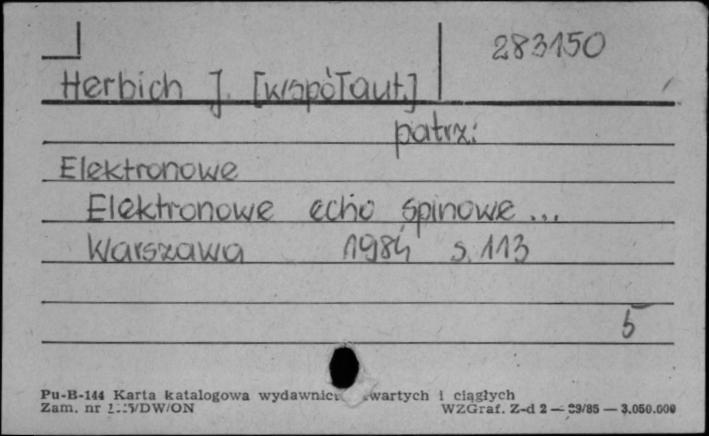 283150
Herbich J. [współaut.]
patrz:
Elektronowe
Elektronowe echo spinowe ...
Warszawa 1984 s. 113
5
Pu-B-144 Karta katalogowa wydawnictw zwartych i ciągłych
Zam. nr WZGraf. Z-d 2 — 3.050.000